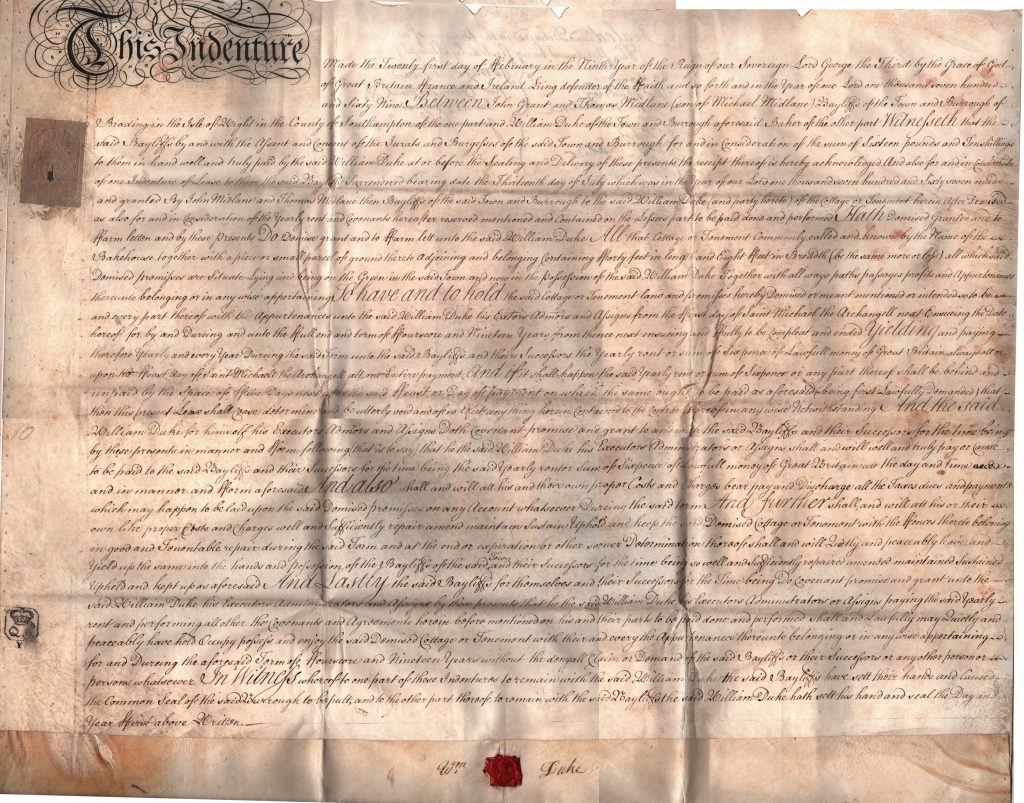 This Indenture
Made the Twenty first day of February in the Ninth Year of the Reign of our Sovereign Lord George the Third by the Grace of God
of Great Britain France and Ireland King defender of the Faith and so forth and in the Year of our Lord one thousand seven hundred
and Sixty Nine Between John Grant and Thomas Midlane (son of Michael Midlane) Bayliffs of the Town and Burrough of
Brading in the Isle of Wight in the County of Southampton of the one part and William Duke of the Town and Burrough aforesaid Baker of the other part Witnesseth that the
said Bayliffs by and with the Assent and Consent of the Jurats and Burgesses of the said Town and Burrough for and in Consideration of the sum of Sixteen pounds and Ten shillings
to them in hand well and truly paid by the said William Duke at or before the Sealing and Delivery of these presents the receipt thereof is hereby acknowledged And also for and in Consideration
of one Indenture of Lease to them the said Bayliffs Surrendered bearing date the Thirteenth day of July which was in the Year of our Lord one thousand seven hundred and Sixty seven made
and granted By John Midlane and Thomas Midlane then Bayliffs of the said Town and Burrough to the said William Duke (and party hereto) of the Cottage or Tenement herein After Demised
as also for and in Consideration of the Yearly rent and Covenants hereafter reserved mentioned and Contained on the Lessees part to be paid done and performed Hath Demised Granted and to
Farm letten and by these Presents Do Demise grant and to Farm lett unto the said William Duke All that Cottage or Tenement Commonly called and known by the Name of the
Bakehouse together with a piece or small parcel of ground thereto Adjoining and belonging Containing Forty feet in length and Eight Feet in Breadth (be the same more or less) all which said
Demised premises are Situate Lying and being on the Green in the said Town and now in the Possession of the said William Duke Together with all ways paths passages profits and Appurtenances
thereunto belonging or in any wise appertaining To have and to hold the said Cottage or Tenement land and premises hereby Demised or meant mentioned or intended so to be
and every part thereof with the Appurtenances unto the said William Duke his Exetors Admors and Assigns from the Feast day of Saint Michael the Archangell next Ensueing the date
hereof for by and Dureing and unto the Full end and term of Fourscore and Nineteen Years from thence next ensuing and Fully to be Compleat and ended Yielding and paying
therefore Yearly and every Year Dureing the said term unto the said Bayliffs and their Successors the Yearly rent or sum of Sixpence of Lawfull money of Great Britain always att or
upon the Feast day of Saint Michael the Archangell att one Entire payment And If it shall happen the said Yearly rent or sum of Sixpence or any part thereof shall be behind and
unpaid by the Space of Five Days next after the said Feast or Day of payment on which the same ought to be paid as aforesaid (being first Lawfully Demanded) that
then this present Lease shall Cease determine and be utterly void and of no Effect any thing herein Contained to the Contrary thereof in any wise Notwithstanding And the said
William Duke for himself his Executors Admors and Assigns Doth Covenant promise and grant to and with the said Bayliffs and their Successors for the time being
by these presents in manner and Form following that is to say that he the said William Duke his Executors Administrators or Assigns shall and will well and truly pay or cause
to be paid to the said Bayliffs and their Successors for the time being the said Yearly rent or Sum of Sixpence of Lawfull money of Great Britain att the day and time
and in manner and Form aforesaid And also shall and will att his and their own proper Costs and Charges bear pay and Discharge all the Taxes dues and payments
which may happen to be laid upon the said Demised premises on any Account whatsoever Dureing the said term And further shall and will att his or their
own like proper Costs and Charges well and Sufficiently repair amend maintain Sustain Uphold and keep the said Demised Cottage or Tenement with the Fences thereto belonging
in good and Tenentable repair dureing the said Term and at the end or expiration or other sooner Determination thereof shall and will Quietly and peaceably leave and
Yield up the same into the hands and possession of the Bayliffs of the said Town and their Successors for the time being so well and Sufficiently repaired amended maintained Sustained
Upheld and kept up as aforesaid And Lastly the said Bayliffs for themselves and their Successors for the Time being Do Covenant promise and grant unto the
said William Duke his Executors Administrators and Assigns by these presents that he the said William Duke his Executors Administrators or Assigns paying the said Yearly
rent and performing all other the Covenants and Agreements herein before mentioned on his and their parts to be paid done and performed shall and Lawfully may Quietly and
peaceably have hold Occupy possess and enjoy the said Demised Cottage or Tenement with their and every the Appurtenance thereunto belonging or in any wise appertaining
for and Dureing the aforesaid Term of Fourscore and Nineteen Years without the denyall Claim or Demand of the said Bayliffs or their Successors or any other person or
persons whatsoever In Witness whereof to one part of these Indentures to remain with the said William Duke the said Bayliffs have sett their hands and Caused
the Common Seal of the said Burrough to be putt, and to the other part thereof to remain with the said Bayliffs the said William Duke hath sett his hand and seal the Day and
Year First above Written
Wm Duke
10